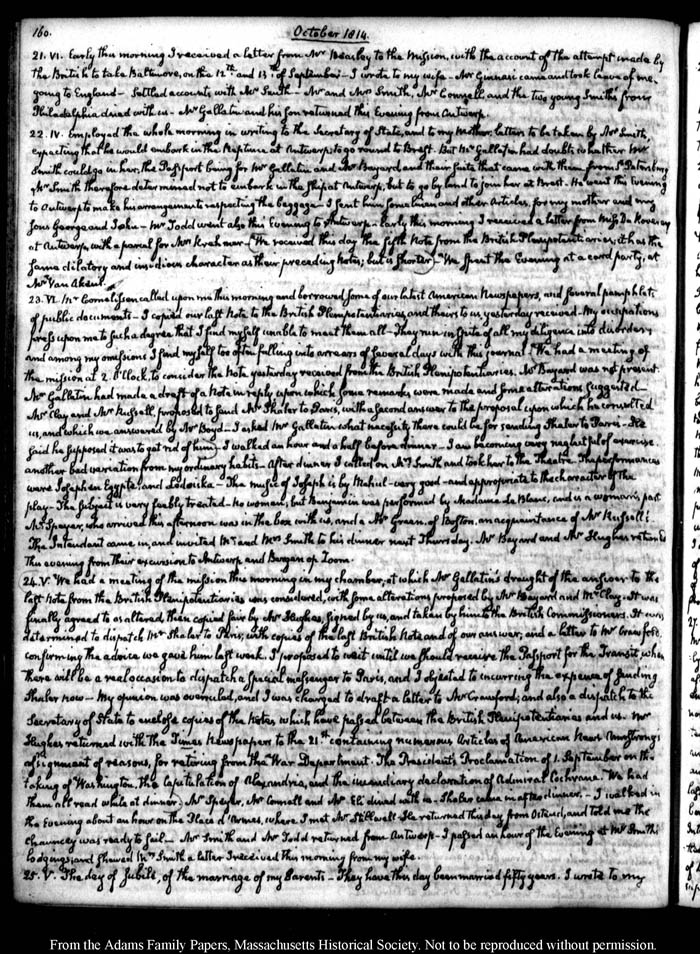 160.
October 1814.
21. VI. Early this morning I received a letter from Mr Beasley to the Mission, with the account of the attempt made by
the British to take Baltimore, on the 12th and 13th of September — I wrote to my wife — Mr came and took leave of me,
going to England — Settled accounts with Mr Smith — Mr and Mrs Smith, Mr Connell, and the two young Smiths from
Philadelphia dined with us — Mr Gallatin and his son returned this Evening from Antwerp.
22. IV. Employed the whole morning in writing to the Secretary of State, and to my Mother, letters to be taken by Mr Smith,
expecting that he would embark in the Neptune at Antwerp to go round to Brest. But Mr Gallatin had doubts whether Mr
Smith could go in her; the Passport being for Mr Gallatin and Mr Bayard, and their Suite that came with them from St Petersburg
Mr Smith therefore determined not to embark in the ship at Antwerp, but to go by land to join her at Brest. He went this evening
to Antwerp to make his arrangements respecting the baggage — I sent him some linen and other Articles, for my mother and my
Sons George and John — Mr Todd went also this Evening to Antwerp — Early this morning I received a letter from Miss
at Antwerp, with a parcel for Mrs — We received this day the fifth Note from the British Plenipotentiaries, it has the
same dilatory and insidious character as their preceding Notes; but is shorter — We spent the Evening at a card party, at
Mr Van Aken's.
23. VI. Mr Cornelissen called upon me this morning and borrowed some of our latest American Newspapers, and several pamphlets
of public documents — I copied our last Note to the British Plenipotentiaries and theirs to us yesterday received. My occupations
press upon me to such a degree that I find myself unable to meet them all — They run in spite of all my diligence into disorder;
and among my omissions I find myself too often falling into arrears of several days with this journal. We had a meeting of
the mission at 2. O'Clock, to consider the Note yesterday received from the British Plenipotentiaries. Mr Bayard was not present.
Mr Gallatin had made a draft of a Note in reply upon which some remarks were made and some alterations suggested —
Mr Clay and Mr Russell, proposed to send Mr Shaler to Paris, with a second answer to the proposal upon which he consulted
us, and which we answered by Mr Boyd — I asked Mr Gallatin what necessity there could be for sending Shaler to Paris — He
said he supposed it was to get rid of him — I walked an hour and a half before dinner — I am becoming very neglectful of exercise.
another bad variation from my ordinary habits — After dinner I called on Mrs Smith and took her to the Theatre. The performances
were Joseph en Egypte, and Lodoiska — The music of Joseph is by Mehul — very good — and appropriate to the character of the
play — The Subject is very feebly treated — No woman; but Benjamin was performed by Madame Le Blanc, and is a woman's part
Mr Speyer, who arrived this afternoon was in the box with us, and a Mr Green, of Boston, an acquaintance of Mr Russell's
The Intendant came in, and invited Mr and Mrs Smith to his dinner next Thursday. Mr Bayard and Mr Hughes returned
this evening from their excursion to Antwerp and Bergen op Zoom.
24. V. We had a meeting of the mission this morning in my chamber, at which Mr Gallatin's draught of the answer to the
last Note from the British Plenipotentiaries was considered, with some alterations proposed by Mr Bayard and Mr Clay. It was
finally agreed to as altered, then copied fair by Mr Hughes, signed by us, and taken by him to the British Commissioners. It was
determined to dispatch Mr Shaler to Paris, with copies of the last British Note and of our answer, and a letter to Mr Crawford,
confirming the advice we gave him last week. I proposed to wait until we should receive the Passport for the Transit, when
there will be a real occasion to dispatch a special messenger to Paris, and I objected to incurring the expence of sending
Shaler now — My opinion was overruled, and I was charged to draft a letter to Mr Crawford; and also a dispatch to the
Secretary of State to enclose copies of the Notes which have passed between the British Plenipotentiaries and us. Mr
Hughes returned with the Times Newspapers to the 21st containing numerous Articles of American News Armstrong's
assignment of reasons, for retiring from the War Department. The President's Proclamation of 1. September on the
taking of Washington, the Capitulation of Alexandria, and the incendiary declaration of Admiral Cochrane. We had
them all read while at dinner. Mr Speyer, Mr Connell and Mr Eli dined with us — Shaler came in after dinner. — I walked in
the Evening about an hour on the Place d'Armes, where I met Mr Stilwell. He returned this day from Ostend, and told me the
Chauncey was ready to sail — Mr Smith and Mr Todd returned from Antwerp — I passed an hour of the Evening at Mr Smith's
lodgings, and shewed Mrs Smith a letter I received this morning from my wife.
25. V. The day of Jubilé, of the marriage of my Parents — They have this day been married fifty years. I wrote to my
From the Adams Family Papers, Massachusetts Historical Society. Not to be reproduced without permission.